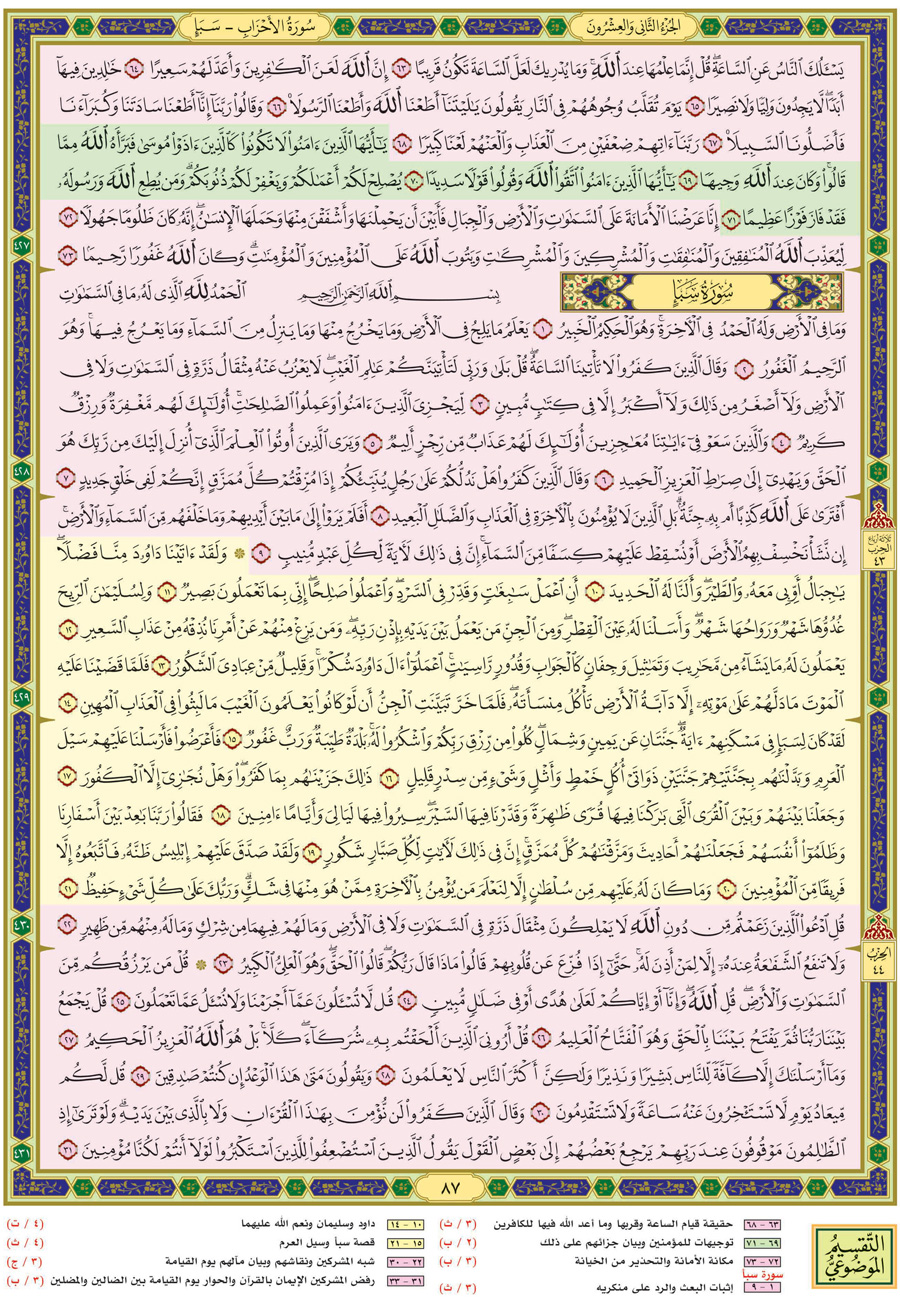 الجُزْءُ الثَّانِي وَالْعِشْرُونَ
سُورَةُ الأَحْزَابِ - سَبَإٍ
يَسْـَٔلُكَ ٱلنَّاسُ عَنِ ٱلسَّاعَةِۖ قُلْ إِنَّمَا عِلْمُهَا عِندَ ٱللَّهِۚ وَمَا يُدْرِيكَ لَعَلَّ ٱلسَّاعَةَ تَكُونُ قَرِيبًا ٦٣ إِنَّ ٱللَّهَ لَعَنَ ٱلْكَٰفِرِينَ وَأَعَدَّ لَهُمْ سَعِيرًا ٦٤ خَٰلِدِينَ فِيهَآ
أَبَدًاۖ لَّا يَجِدُونَ وَلِيًّا وَلَا نَصِيرًا ٦٥ يَوْمَ تُقَلَّبُ وُجُوهُهُمْ فِى ٱلنَّارِ يَقُولُونَ يَٰلَيْتَنَآ أَطَعْنَا ٱللَّهَ وَأَطَعْنَا ٱلرَّسُولَا۠ ٦٦ وَقَالُوا۟ رَبَّنَآ إِنَّآ أَطَعْنَا سَادَتَنَا وَكُبَرَآءَنَا
فَأَضَلُّونَا ٱلسَّبِيلَا۠ ٦٧ رَبَّنَآ ءَاتِهِمْ ضِعْفَيْنِ مِنَ ٱلْعَذَابِ وَٱلْعَنْهُمْ لَعْنًا كَبِيرًا ٦٨ يَٰٓأَيُّهَا ٱلَّذِينَ ءَامَنُوا۟ لَا تَكُونُوا۟ كَٱلَّذِينَ ءَاذَوْا۟ مُوسَىٰ فَبَرَّأَهُ ٱللَّهُ مِمَّا
قَالُوا۟ۚ وَكَانَ عِندَ ٱللَّهِ وَجِيهًا ٦٩ يَٰٓأَيُّهَا ٱلَّذِينَ ءَامَنُوا۟ ٱتَّقُوا۟ ٱللَّهَ وَقُولُوا۟ قَوْلًا سَدِيدًا ٧٠ يُصْلِحْ لَكُمْ أَعْمَٰلَكُمْ وَيَغْفِرْ لَكُمْ ذُنُوبَكُمْۗ وَمَن يُطِعِ ٱللَّهَ وَرَسُولَهُۥ
فَقَدْ فَازَ فَوْزًا عَظِيمًا ٧١ إِنَّا عَرَضْنَا ٱلْأَمَانَةَ عَلَى ٱلسَّمَٰوَٰتِ وَٱلْأَرْضِ وَٱلْجِبَالِ فَأَبَيْنَ أَن يَحْمِلْنَهَا وَأَشْفَقْنَ مِنْهَا وَحَمَلَهَا ٱلْإِنسَٰنُۖ إِنَّهُۥ كَانَ ظَلُومًا جَهُولًا ٧٢
لِّيُعَذِّبَ ٱللَّهُ ٱلْمُنَٰفِقِينَ وَٱلْمُنَٰفِقَٰتِ وَٱلْمُشْرِكِينَ وَٱلْمُشْرِكَٰتِ وَيَتُوبَ ٱللَّهُ عَلَى ٱلْمُؤْمِنِينَ وَٱلْمُؤْمِنَٰتِۗ وَكَانَ ٱللَّهُ غَفُورًا رَّحِيمًۢا ٧٣
سُورَةُ سَبَإٍ
بِسْمِ ٱللَّهِ ٱلرَّحْمَٰنِ ٱلرَّحِيمِ
ٱلْحَمْدُ لِلَّهِ ٱلَّذِى لَهُۥ مَا فِى ٱلسَّمَٰوَٰتِ
وَمَا فِى ٱلْأَرْضِ وَلَهُ ٱلْحَمْدُ فِى ٱلْءَاخِرَةِۚ وَهُوَ ٱلْحَكِيمُ ٱلْخَبِيرُ ١ يَعْلَمُ مَا يَلِجُ فِى ٱلْأَرْضِ وَمَا يَخْرُجُ مِنْهَا وَمَا يَنزِلُ مِنَ ٱلسَّمَآءِ وَمَا يَعْرُجُ فِيهَاۚ وَهُوَ
ٱلرَّحِيمُ ٱلْغَفُورُ ٢ وَقَالَ ٱلَّذِينَ كَفَرُوا۟ لَا تَأْتِينَا ٱلسَّاعَةُۖ قُلْ بَلَىٰ وَرَبِّى لَتَأْتِيَنَّكُمْ عَٰلِمِ ٱلْغَيْبِۖ لَا يَعْزُبُ عَنْهُ مِثْقَالُ ذَرَّةٍ فِى ٱلسَّمَٰوَٰتِ وَلَا فِى
ٱلْأَرْضِ وَلَآ أَصْغَرُ مِن ذَٰلِكَ وَلَآ أَكْبَرُ إِلَّا فِى كِتَٰبٍ مُّبِينٍ ٣ لِّيَجْزِىَ ٱلَّذِينَ ءَامَنُوا۟ وَعَمِلُوا۟ ٱلصَّٰلِحَٰتِۚ أُو۟لَٰٓئِكَ لَهُم مَّغْفِرَةٌ وَرِزْقٌ
كَرِيمٌ ٤ وَٱلَّذِينَ سَعَوْ فِىٓ ءَايَٰتِنَا مُعَٰجِزِينَ أُو۟لَٰٓئِكَ لَهُمْ عَذَابٌ مِّن رِّجْزٍ أَلِيمٌ ٥ وَيَرَى ٱلَّذِينَ أُوتُوا۟ ٱلْعِلْمَ ٱلَّذِىٓ أُنزِلَ إِلَيْكَ مِن رَّبِّكَ هُوَ
ٱلْحَقَّ وَيَهْدِىٓ إِلَىٰ صِرَٰطِ ٱلْعَزِيزِ ٱلْحَمِيدِ ٦ وَقَالَ ٱلَّذِينَ كَفَرُوا۟ هَلْ نَدُلُّكُمْ عَلَىٰ رَجُلٍ يُنَبِّئُكُمْ إِذَا مُزِّقْتُمْ كُلَّ مُمَزَّقٍ إِنَّكُمْ لَفِى خَلْقٍ جَدِيدٍ ٧
أَفْتَرَىٰ عَلَى ٱللَّهِ كَذِبًا أَم بِهِۦ جِنَّةٌۢۗ بَلِ ٱلَّذِينَ لَا يُؤْمِنُونَ بِٱلْءَاخِرَةِ فِى ٱلْعَذَابِ وَٱلضَّلَٰلِ ٱلْبَعِيدِ ٨ أَفَلَمْ يَرَوْا۟ إِلَىٰ مَا بَيْنَ أَيْدِيهِمْ وَمَا خَلْفَهُم مِّنَ ٱلسَّمَآءِ وَٱلْأَرْضِۚ
إِن نَّشَأْ نَخْسِفْ بِهِمُ ٱلْأَرْضَ أَوْ نُسْقِطْ عَلَيْهِمْ كِسَفًا مِّنَ ٱلسَّمَآءِۚ إِنَّ فِى ذَٰلِكَ لَءَايَةً لِّكُلِّ عَبْدٍ مُّنِيبٍ ٩ ۞ وَلَقَدْ ءَاتَيْنَا دَاوُۥدَ مِنَّا فَضْلًاۖ
يَٰجِبَالُ أَوِّبِى مَعَهُۥ وَٱلطَّيْرَۖ وَأَلَنَّا لَهُ ٱلْحَدِيدَ ١٠ أَنِ ٱعْمَلْ سَٰبِغَٰتٍ وَقَدِّرْ فِى ٱلسَّرْدِۖ وَٱعْمَلُوا۟ صَٰلِحًاۖ إِنِّى بِمَا تَعْمَلُونَ بَصِيرٌ ١١ وَلِسُلَيْمَٰنَ ٱلرِّيحَ
غُدُوُّهَا شَهْرٌ وَرَوَاحُهَا شَهْرٌۖ وَأَسَلْنَا لَهُۥ عَيْنَ ٱلْقِطْرِۖ وَمِنَ ٱلْجِنِّ مَن يَعْمَلُ بَيْنَ يَدَيْهِ بِإِذْنِ رَبِّهِۦۖ وَمَن يَزِغْ مِنْهُمْ عَنْ أَمْرِنَا نُذِقْهُ مِنْ عَذَابِ ٱلسَّعِيرِ ١٢
يَعْمَلُونَ لَهُۥ مَا يَشَآءُ مِن مَّحَٰرِيبَ وَتَمَٰثِيلَ وَجِفَانٍ كَٱلْجَوَابِ وَقُدُورٍ رَّاسِيَٰتٍۚ ٱعْمَلُوٓا۟ ءَالَ دَاوُۥدَ شُكْرًاۚ وَقَلِيلٌ مِّنْ عِبَادِىَ ٱلشَّكُورُ ١٣ فَلَمَّا قَضَيْنَا عَلَيْهِ
ٱلْمَوْتَ مَا دَلَّهُمْ عَلَىٰ مَوْتِهِۦٓ إِلَّا دَآبَّةُ ٱلْأَرْضِ تَأْكُلُ مِنسَأَتَهُۥۖ فَلَمَّا خَرَّ تَبَيَّنَتِ ٱلْجِنُّ أَن لَّوْ كَانُوا۟ يَعْلَمُونَ ٱلْغَيْبَ مَا لَبِثُوا۟ فِى ٱلْعَذَابِ ٱلْمُهِينِ ١٤
لَقَدْ كَانَ لِسَبَإٍ فِى مَسْكَنِهِمْ ءَايَةٌۖ جَنَّتَانِ عَن يَمِينٍ وَشِمَالٍۖ كُلُوا۟ مِن رِّزْقِ رَبِّكُمْ وَٱشْكُرُوا۟ لَهُۥۚ بَلْدَةٌ طَيِّبَةٌ وَرَبٌّ غَفُورٌ ١٥ فَأَعْرَضُوا۟ فَأَرْسَلْنَا عَلَيْهِمْ سَيْلَ
ٱلْعَرِمِ وَبَدَّلْنَٰهُم بِجَنَّتَيْهِمْ جَنَّتَيْنِ ذَوَاتَىْ أُكُلٍ خَمْطٍ وَأَثْلٍ وَشَىْءٍ مِّن سِدْرٍ قَلِيلٍ ١٦ ذَٰلِكَ جَزَيْنَٰهُم بِمَا كَفَرُوا۟ۖ وَهَلْ نُجَٰزِىٓ إِلَّا ٱلْكَفُورَ ١٧
وَجَعَلْنَا بَيْنَهُمْ وَبَيْنَ ٱلْقُرَى ٱلَّتِى بَٰرَكْنَا فِيهَا قُرًى ظَٰهِرَةً وَقَدَّرْنَا فِيهَا ٱلسَّيْرَۖ سِيرُوا۟ فِيهَا لَيَالِىَ وَأَيَّامًا ءَامِنِينَ ١٨ فَقَالُوا۟ رَبَّنَا بَٰعِدْ بَيْنَ أَسْفَارِنَا
وَظَلَمُوٓا۟ أَنفُسَهُمْ فَجَعَلْنَٰهُمْ أَحَادِيثَ وَمَزَّقْنَٰهُمْ كُلَّ مُمَزَّقٍۚ إِنَّ فِى ذَٰلِكَ لَءَايَٰتٍ لِّكُلِّ صَبَّارٍ شَكُورٍ ١٩ وَلَقَدْ صَدَّقَ عَلَيْهِمْ إِبْلِيسُ ظَنَّهُۥ فَٱتَّبَعُوهُ إِلَّا
فَرِيقًا مِّنَ ٱلْمُؤْمِنِينَ ٢٠ وَمَا كَانَ لَهُۥ عَلَيْهِم مِّن سُلْطَٰنٍ إِلَّا لِنَعْلَمَ مَن يُؤْمِنُ بِٱلْءَاخِرَةِ مِمَّنْ هُوَ مِنْهَا فِى شَكٍّۗ وَرَبُّكَ عَلَىٰ كُلِّ شَىْءٍ حَفِيظٌ ٢١
قُلِ ٱدْعُوا۟ ٱلَّذِينَ زَعَمْتُم مِّن دُونِ ٱللَّهِۖ لَا يَمْلِكُونَ مِثْقَالَ ذَرَّةٍ فِى ٱلسَّمَٰوَٰتِ وَلَا فِى ٱلْأَرْضِ وَمَا لَهُمْ فِيهِمَا مِن شِرْكٍ وَمَا لَهُۥ مِنْهُم مِّن ظَهِيرٍ ٢٢
وَلَا تَنفَعُ ٱلشَّفَٰعَةُ عِندَهُۥٓ إِلَّا لِمَنْ أَذِنَ لَهُۥۚ حَتَّىٰٓ إِذَا فُزِّعَ عَن قُلُوبِهِمْ قَالُوا۟ مَاذَا قَالَ رَبُّكُمْۖ قَالُوا۟ ٱلْحَقَّۖ وَهُوَ ٱلْعَلِىُّ ٱلْكَبِيرُ ٢٣ ۞ قُلْ مَن يَرْزُقُكُم مِّنَ
ٱلسَّمَٰوَٰتِ وَٱلْأَرْضِۖ قُلِ ٱللَّهُۖ وَإِنَّآ أَوْ إِيَّاكُمْ لَعَلَىٰ هُدًى أَوْ فِى ضَلَٰلٍ مُّبِينٍ ٢٤ قُل لَّا تُسْـَٔلُونَ عَمَّآ أَجْرَمْنَا وَلَا نُسْـَٔلُ عَمَّا تَعْمَلُونَ ٢٥ قُلْ يَجْمَعُ
بَيْنَنَا رَبُّنَا ثُمَّ يَفْتَحُ بَيْنَنَا بِٱلْحَقِّ وَهُوَ ٱلْفَتَّاحُ ٱلْعَلِيمُ ٢٦ قُلْ أَرُونِىَ ٱلَّذِينَ أَلْحَقْتُم بِهِۦ شُرَكَآءَۖ كَلَّاۚ بَلْ هُوَ ٱللَّهُ ٱلْعَزِيزُ ٱلْحَكِيمُ ٢٧
وَمَآ أَرْسَلْنَٰكَ إِلَّا كَآفَّةً لِّلنَّاسِ بَشِيرًا وَنَذِيرًا وَلَٰكِنَّ أَكْثَرَ ٱلنَّاسِ لَا يَعْلَمُونَ ٢٨ وَيَقُولُونَ مَتَىٰ هَٰذَا ٱلْوَعْدُ إِن كُنتُمْ صَٰدِقِينَ ٢٩ قُل لَّكُم
مِّيعَادُ يَوْمٍ لَّا تَسْتَـْٔخِرُونَ عَنْهُ سَاعَةً وَلَا تَسْتَقْدِمُونَ ٣٠ وَقَالَ ٱلَّذِينَ كَفَرُوا۟ لَن نُّؤْمِنَ بِهَٰذَا ٱلْقُرْءَانِ وَلَا بِٱلَّذِى بَيْنَ يَدَيْهِۗ وَلَوْ تَرَىٰٓ إِذِ
ٱلظَّٰلِمُونَ مَوْقُوفُونَ عِندَ رَبِّهِمْ يَرْجِعُ بَعْضُهُمْ إِلَىٰ بَعْضٍ ٱلْقَوْلَ يَقُولُ ٱلَّذِينَ ٱسْتُضْعِفُوا۟ لِلَّذِينَ ٱسْتَكْبَرُوا۟ لَوْلَآ أَنتُمْ لَكُنَّا مُؤْمِنِينَ ٣١
ثلاثة أرباع
الحزب
٤٣
الحزب
٤٤
٤٢٧
٤٢٨
٤٢٩
٤٣٠
٤٣١
٨٧
التَّقسِيمُ
المَوضُوعِيُّ
٦٣ - ٦٨ حقيقة قيام الساعة وقربها وما أعد الله فيها للكافرين (٣ / ث)
٦٩ - ٧١ توجيهات للمؤمنين وبيان جزائهم على ذلك (٢ / ب)
٧٢ - ٧٣ مكانة الأمانة والتحذير من الخيانة (٣ / ب)
سورة سبأ
١ - ٩ إثبات البعث والرد على منكريه (٣ / ث)
١٠ - ١٤ داود وسليمان ونعم الله عليهما (٤ / ت)
١٥ - ٢١ قصة سبأ وسيل العرم (٤ / ث)
٢٢ - ٣٠ شبه المشركين ونقاشهم وبيان مآلهم يوم القيامة (٣ / ج)
٣١ - ٣٣ رفض المشركين الإيمان بالقرآن والحوار يوم القيامة بين الضالين والمضلين (٣ / ب)